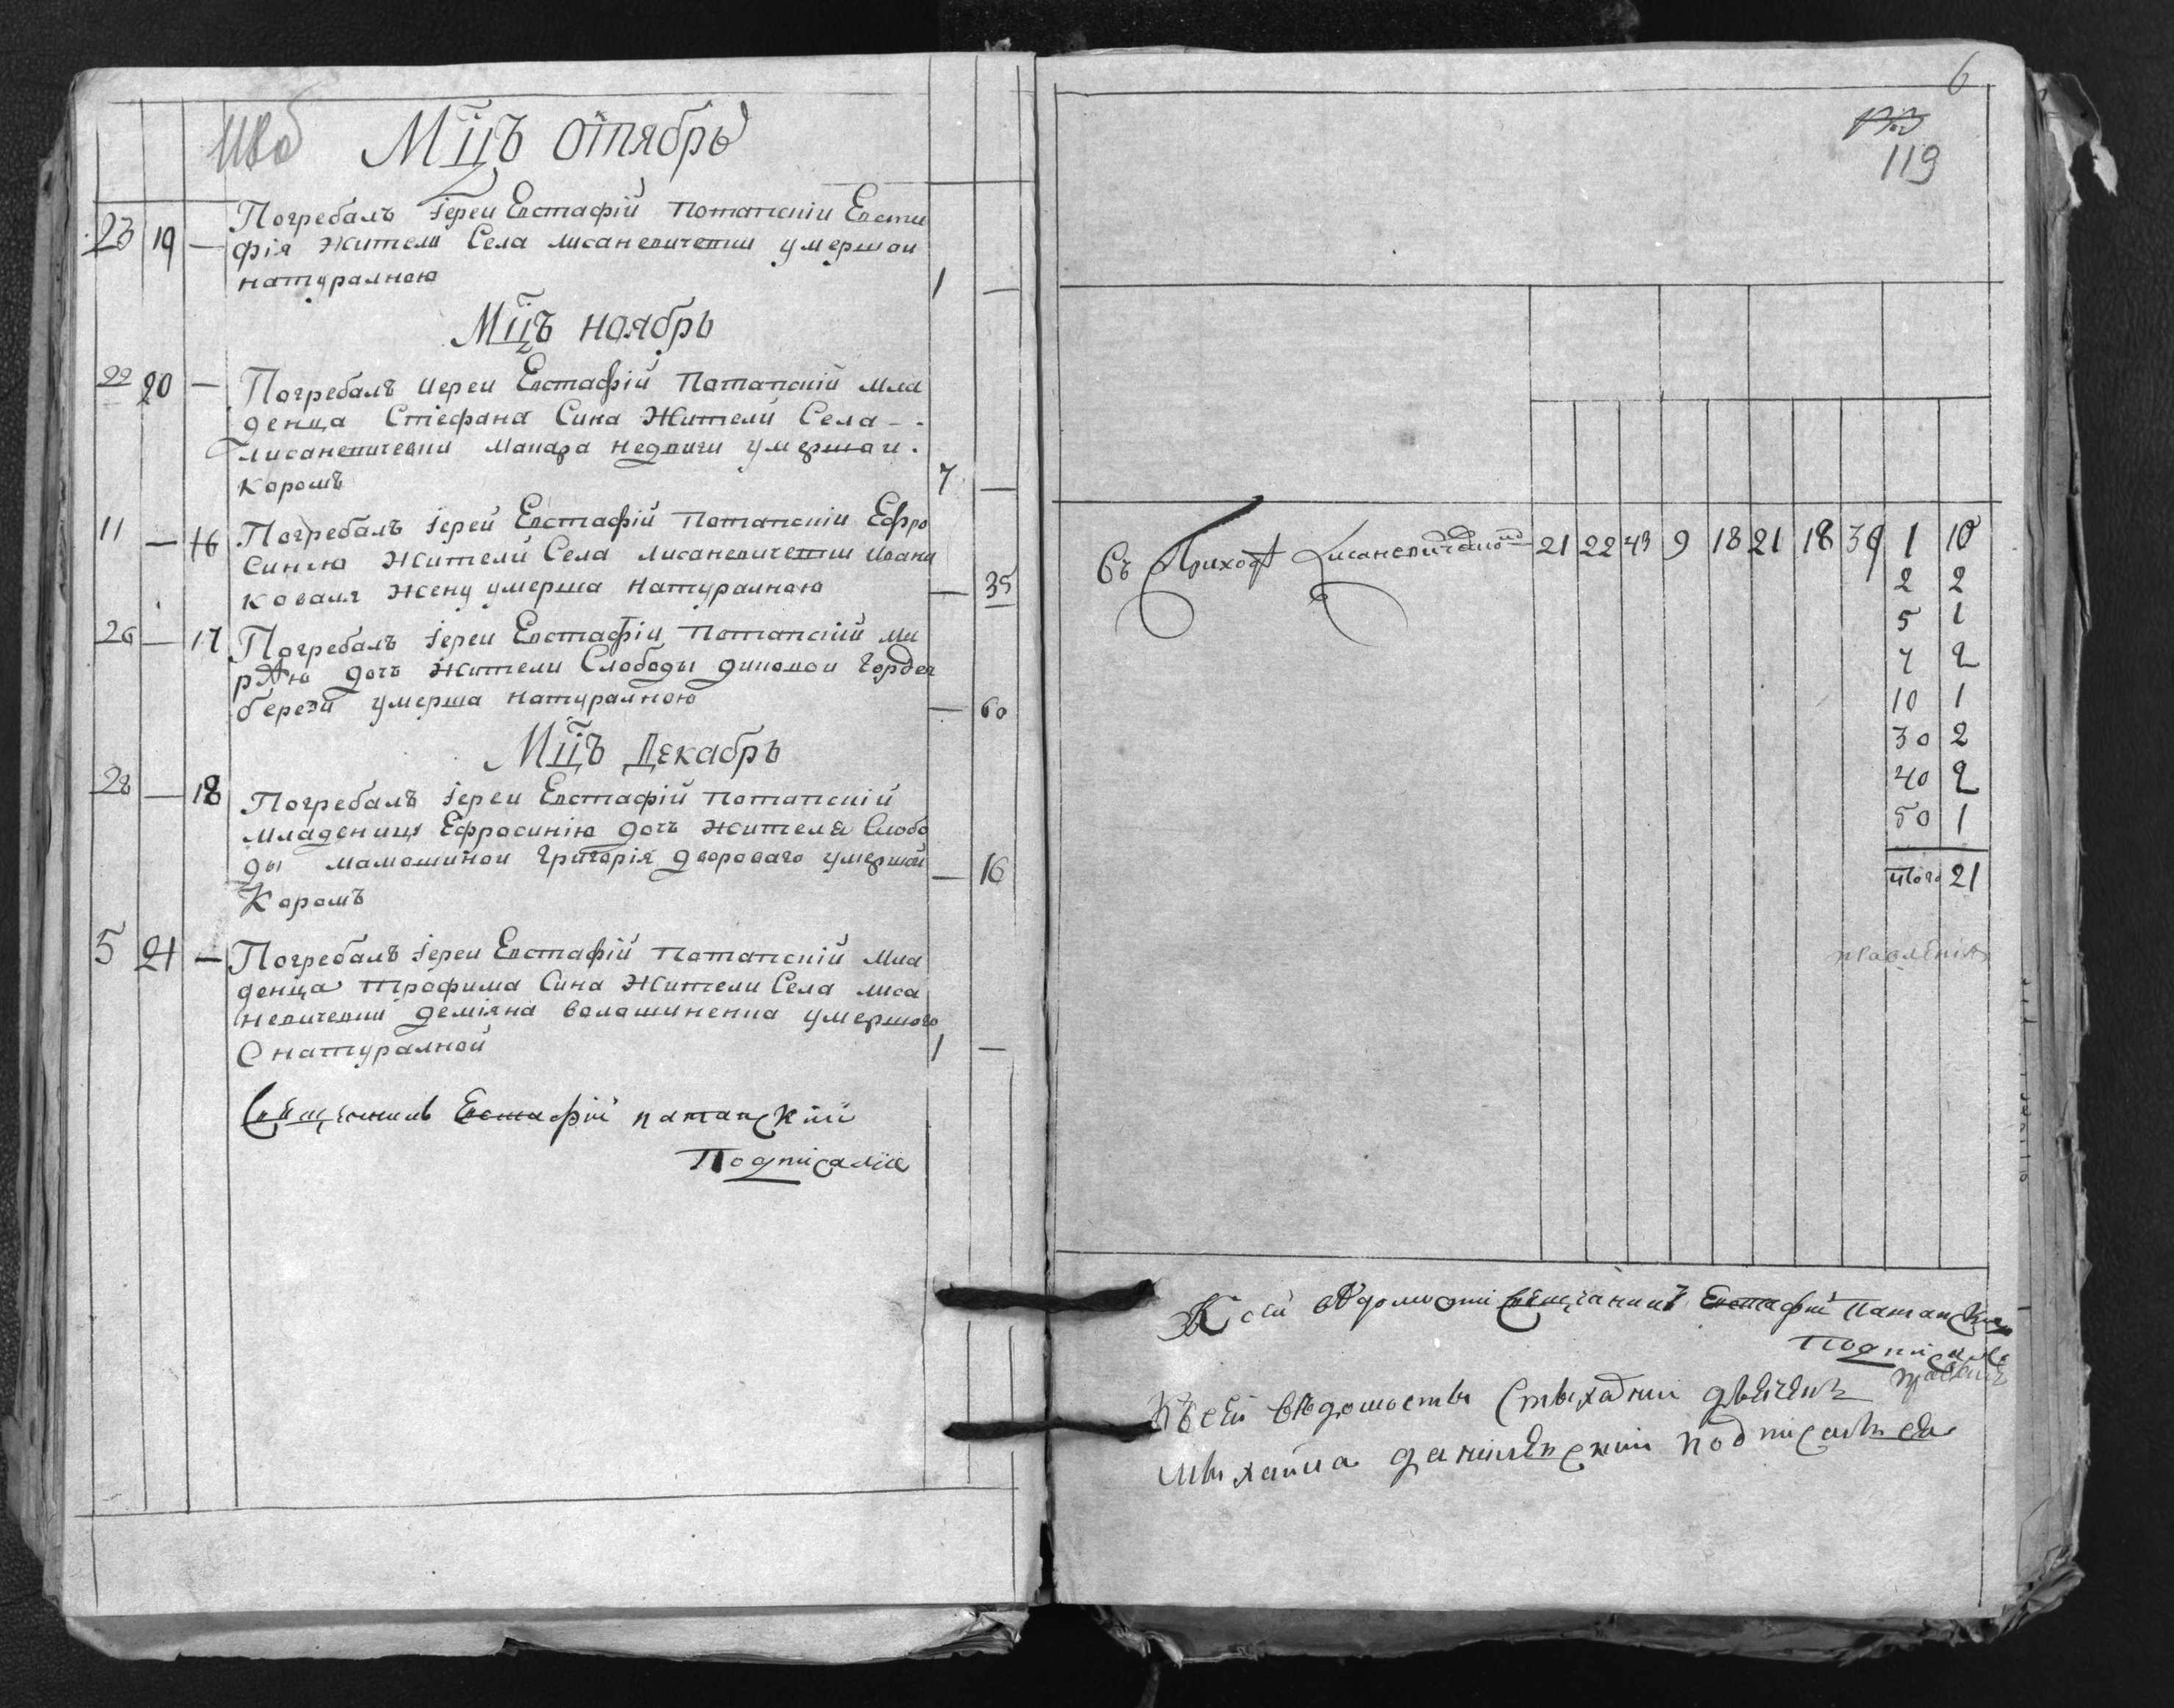 Мцъ октябръ
23 19 — Погребалъ Іереи Евстафій Потапскіи Евсти
фія жителя Села лисаневичевки умершои
натуралною 1 —
Мцъ ноябръ
22 20 — Погребалъ Иереи Евстафій Потапскій мла
денца Стефана Сина Жители Села -
лисаневичевки Макара недвиги умершаи
коромъ 7 —
11 — 16 Погребалъ Іерей Евстафій Потапскіи Ефро
синію Жители Села лисаневичевки Ивана
коваля жену умерша натуралною — 35
26 — 17 Погребалъ Іереи Евстафіи Потапскій
дочь жители Слободы Гордея
берези умерша натуралною — 60
Мцъ Декабръ
28 — 18 Погребалъ Іереи Евстафій Потапскій
младеницу Ефросинію дочь жителя Слобо
ды мамошинои григорія двороваго умершой — 16
Коромъ
5 21 — Погребалъ Іереи Евстафій Потапскій Мла
денца трофима Сина Жители Села лиса
невичевки деміяна волошиненка умершого
С натуралной 1 —
Священникъ Евстафій потапскій
Подписалсе
6
119
Съ Приходѣ Лисаневичевкой 21 22 43 9 18 21 18 39 1 10
2 2
5 1
7 2
10 1
30 2
40 2
50 1
Итого 21
К сей вѣдомости священникъ Евстафій Патапский
Подписалсе
Къ сей вѣдомосты стыхарний дѣячекъ
мыхаила данилевский подписалъся